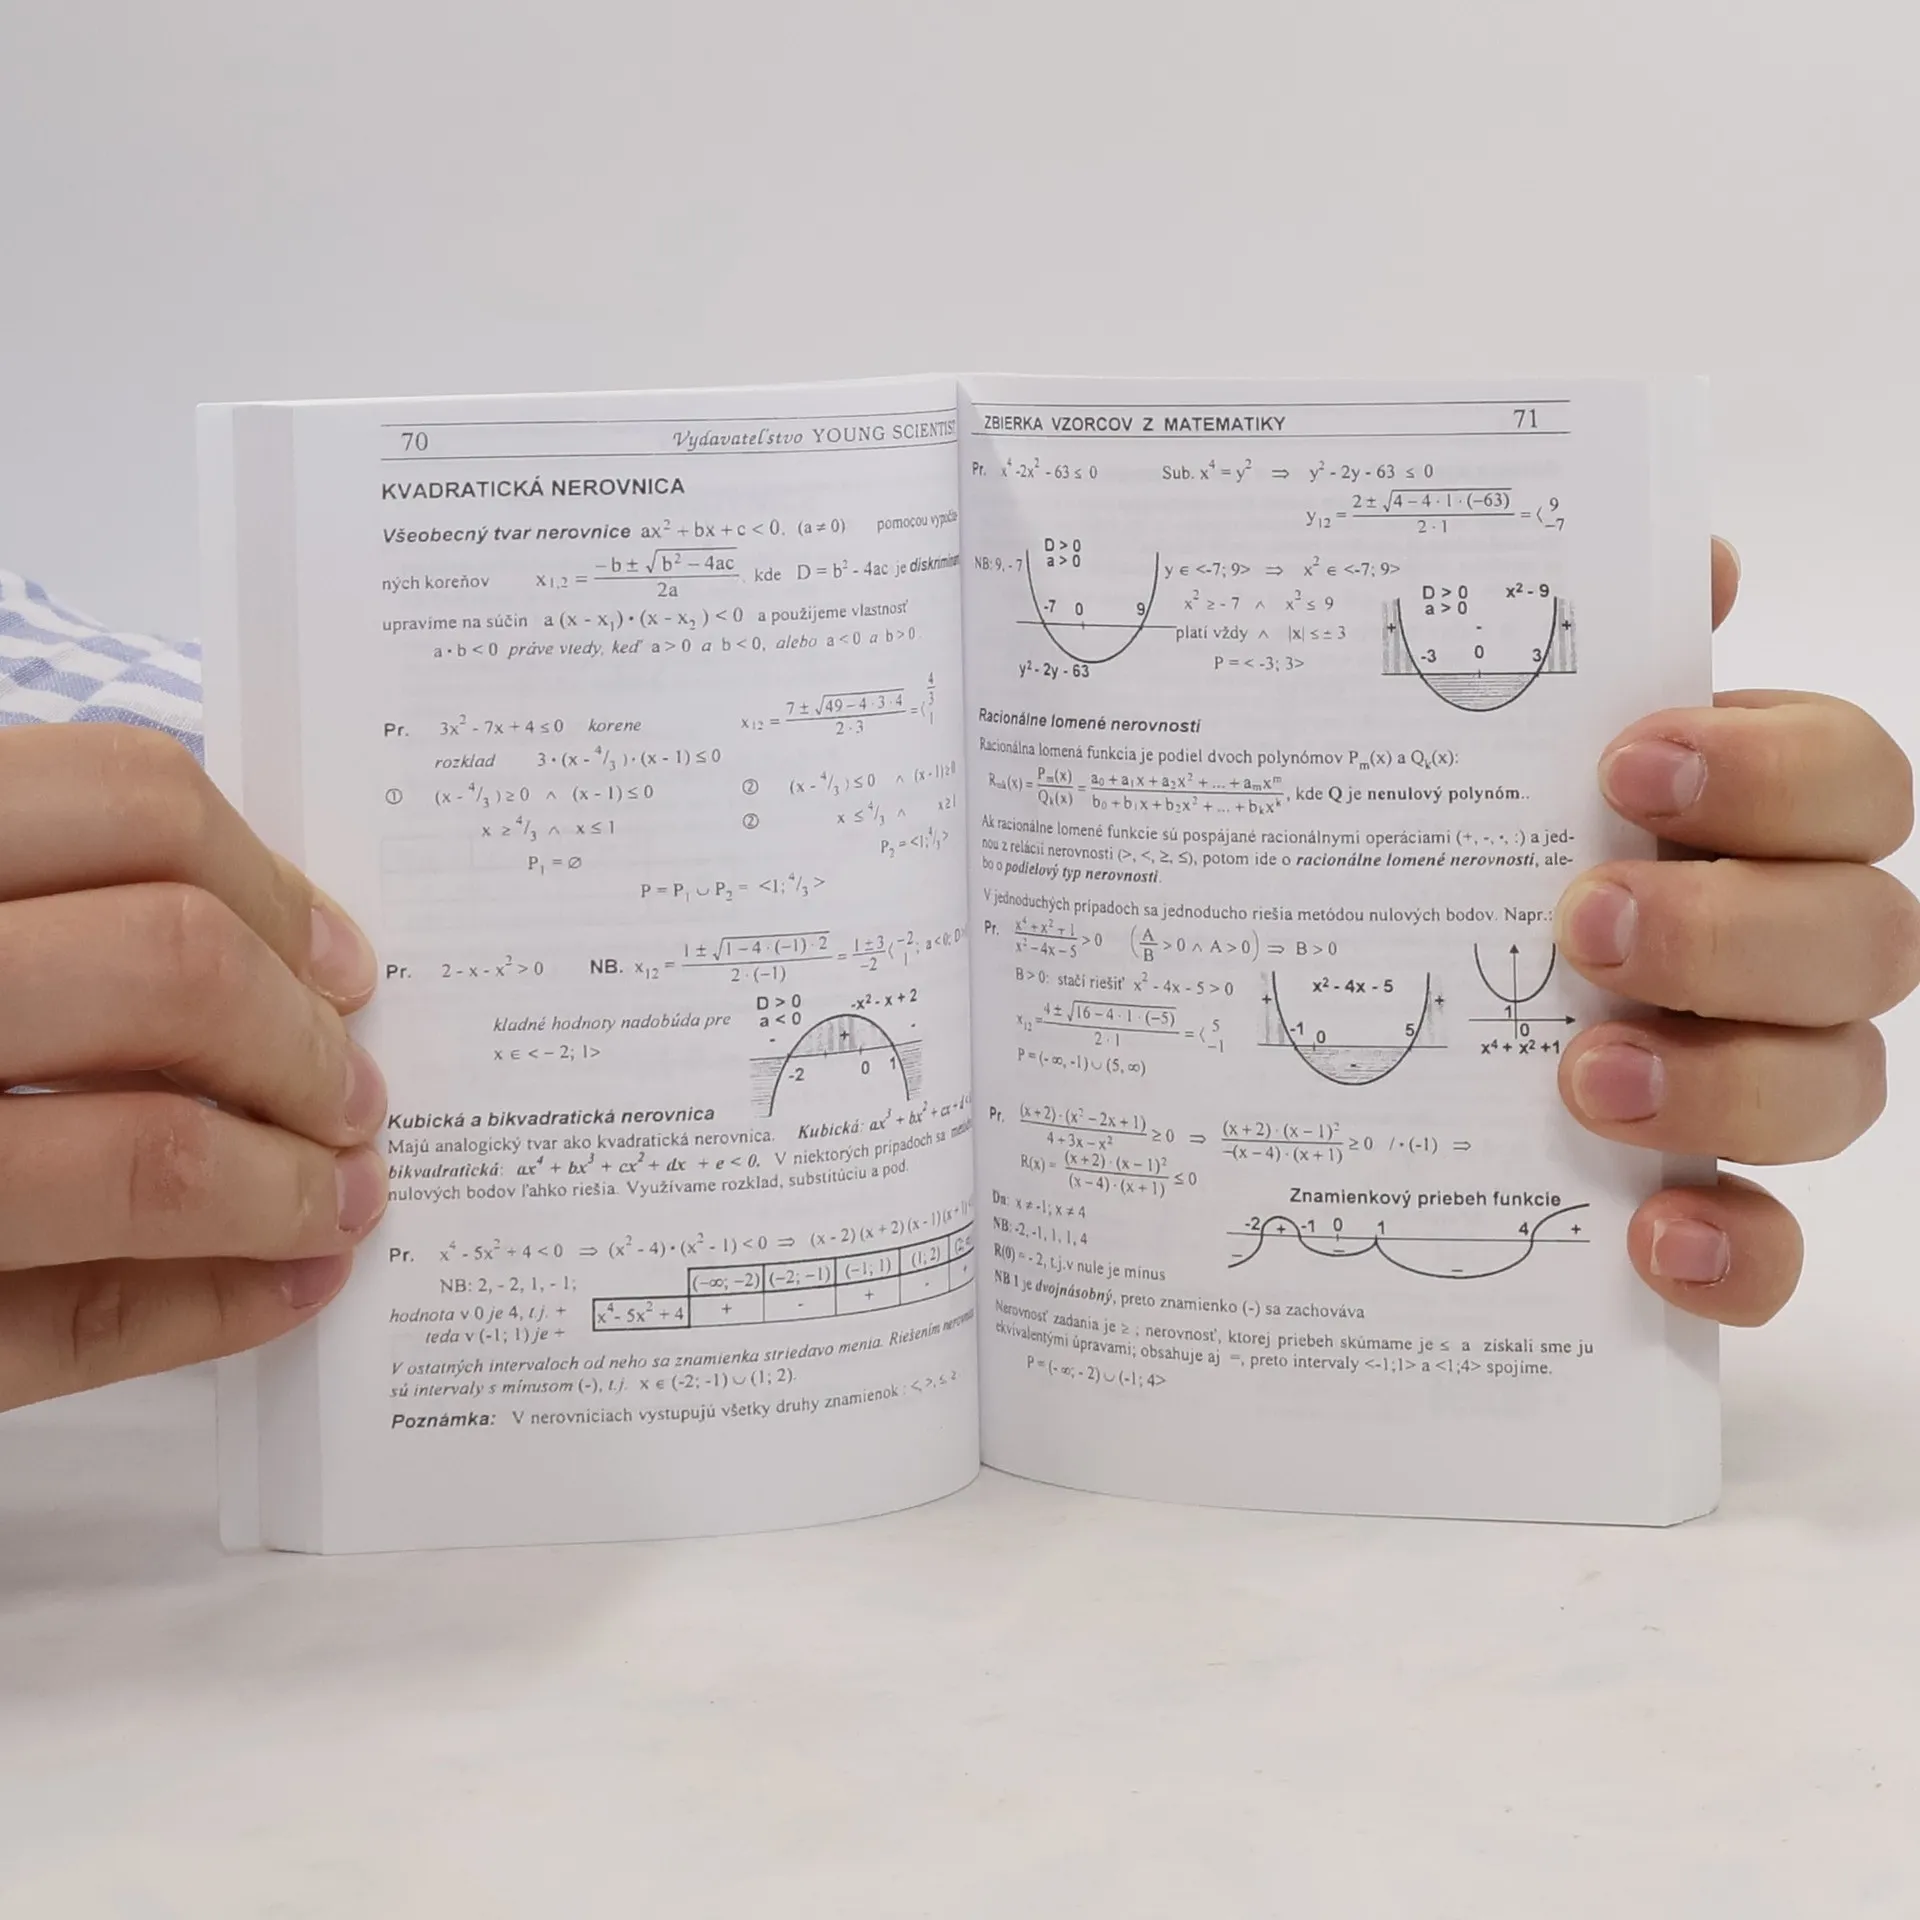 70 Vydavateľstvo YOUNG SCIENTIST
KVADRATICKÁ NEROVNICA
Všeobecný tvar nerovnice ax² + bx + c < 0, (a ≠ 0) pomocou
ných koreňov x₁,₂ = (-b ± √(b² – 4ac))/(2a), kde D = b² - 4ac je
upravíme na súčin a (x - x₁) • (x - x₂) < 0 a použijeme vlastnosť
a • b < 0 práve vtedy, keď a > 0 a b < 0, alebo a < 0 a b > 0.
Pr. 3x² - 7x + 4 ≤ 0 korene x₁₂ = (7 ± √(49 – 4 · 3 · 4))/(2 · 3) = ⟨ 4/3 1
rozklad 3 • (x - ⁴/₃) • (x - 1) ≤ 0
① (x - ⁴/₃) ≥ 0 ∧ (x - 1) ≤ 0 ② (x - ⁴/₃) ≤ 0 ∧ (x - 1) ≥ 0
x ≥ ⁴/₃ ∧ x ≤ 1 ② x ≤ ⁴/₃ ∧ x ≥ 1
P₁ = ∅ P₂ = <1; ⁴/₃>
P = P₁ ∪ P₂ = <1; ⁴/₃>
Pr. 2 - x - x² > 0 NB. x₁₂ = (1 ± √(1 – 4 · (–1) · 2))/(2 · (–1)) = (1 ± 3)/(–2) ⟨ –2 1 ; a < 0; D >
D > 0 -x² - x + 2
a < 0
kladné hodnoty nadobúda pre - + -
x ∈ < – 2; 1>
-2 0 1
Kubická a bikvadratická nerovnica
Majú analogický tvar ako kvadratická nerovnica. Kubická: ax³ + bx² + cx + d
bikvadratická: ax⁴ + bx³ + cx² + dx + e < 0. V niektorých prípadoch sa
nulových bodov ľahko riešia. Využívame rozklad, substitúciu a pod.
Pr. x⁴ - 5x² + 4 < 0 ⇒ (x² - 4) • (x² - 1) < 0 ⇒ (x - 2) (x + 2) (x - 1) (x + 1)
NB: 2, - 2, 1, - 1; (–∞; –2) (–2; –1) (–1; 1) (1; 2)
hodnota v 0 je 4, t.j. + x⁴ - 5x² + 4 + - + - +
teda v (-1; 1) je +
V ostatných intervaloch od neho sa znamienka striedavo menia. Riešením
sú intervaly s mínusom (-), t.j. x ∈ (-2; -1) ∪ (1; 2).
Poznámka: V nerovniciach vystupujú všetky druhy znamienok : <, >, ≤, ≥
ZBIERKA VZORCOV Z MATEMATIKY 71
Pr. x⁴ -2x² - 63 ≤ 0 Sub. x⁴ = y² ⇒ y² - 2y - 63 ≤ 0
y₁₂ = (2 ± √(4 – 4 · 1 · (–63)))/(2 · 1) = ⟨ 9 –7
D > 0
NB: 9, - 7 a > 0 y ∈ <-7; 9> ⇒ x² ∈ <-7; 9>
D > 0 x² - 9
-7 0 9 x² ≥ - 7 ∧ x² ≤ 9 a > 0
platí vždy ∧ |x| ≤ ± 3 + - +
y² - 2y - 63 P = < -3; 3> -3 0 3
Racionálne lomené nerovnosti
Racionálna lomená funkcia je podiel dvoch polynómov Pₘ(x) a Qₖ(x):
Rₘₖ(x) = Pₘ(x)/Qₖ(x) = (a₀ + a₁x + a₂x² + ... + aₘxᵐ)/(b₀ + b₁x + b₂x² + ... + bₖxᵏ), kde Q je nenulový polynóm..
Ak racionálne lomené funkcie sú pospájané racionálnymi operáciami (+, -, •, :) a jed-
nou z relácií nerovnosti (>, <, ≥, ≤), potom ide o racionálne lomené nerovnosti, ale-
bo o podielový typ nerovnosti.
V jednoduchých prípadoch sa jednoducho riešia metódou nulových bodov. Napr.:
Pr. (x⁴ + x² + 1)/(x² – 4x – 5) > 0 (A/B > 0 ∧ A > 0) ⇒ B > 0
B > 0: stačí riešiť x² - 4x - 5 > 0 + x² - 4x - 5 +
x₁₂ = (4 ± √(16 – 4 · 1 · (–5)))/(2 · 1) = ⟨ 5 –1 -1 0 5 1 0
P = (- ∞, -1) ∪ (5, ∞) - x⁴ + x² +1
Pr. ((x + 2) · (x² – 2x + 1))/(4 + 3x – x²) ≥ 0 ⇒ ((x + 2) · (x – 1)²)/(–(x – 4) · (x + 1)) ≥ 0 / • (-1) ⇒
R(x) = ((x + 2) · (x – 1)²)/((x – 4) · (x + 1)) ≤ 0
Dn: x ≠ -1; x ≠ 4 Znamienkový priebeh funkcie
NB: -2, -1, 1, 1, 4 -2 + -1 0 1 4 +
R(0) = - 2, t.j.v nule je mínus - - -
NB 1 je dvojnásobný, preto znamienko (-) sa zachováva
Nerovnosť zadania je ≥ ; nerovnosť, ktorej priebeh skúmame je ≤ a získali sme ju
ekvivalentými úpravami; obsahuje aj =, preto intervaly <-1;1> a <1;4> spojíme.
P = (- ∞; - 2) ∪ (-1; 4>